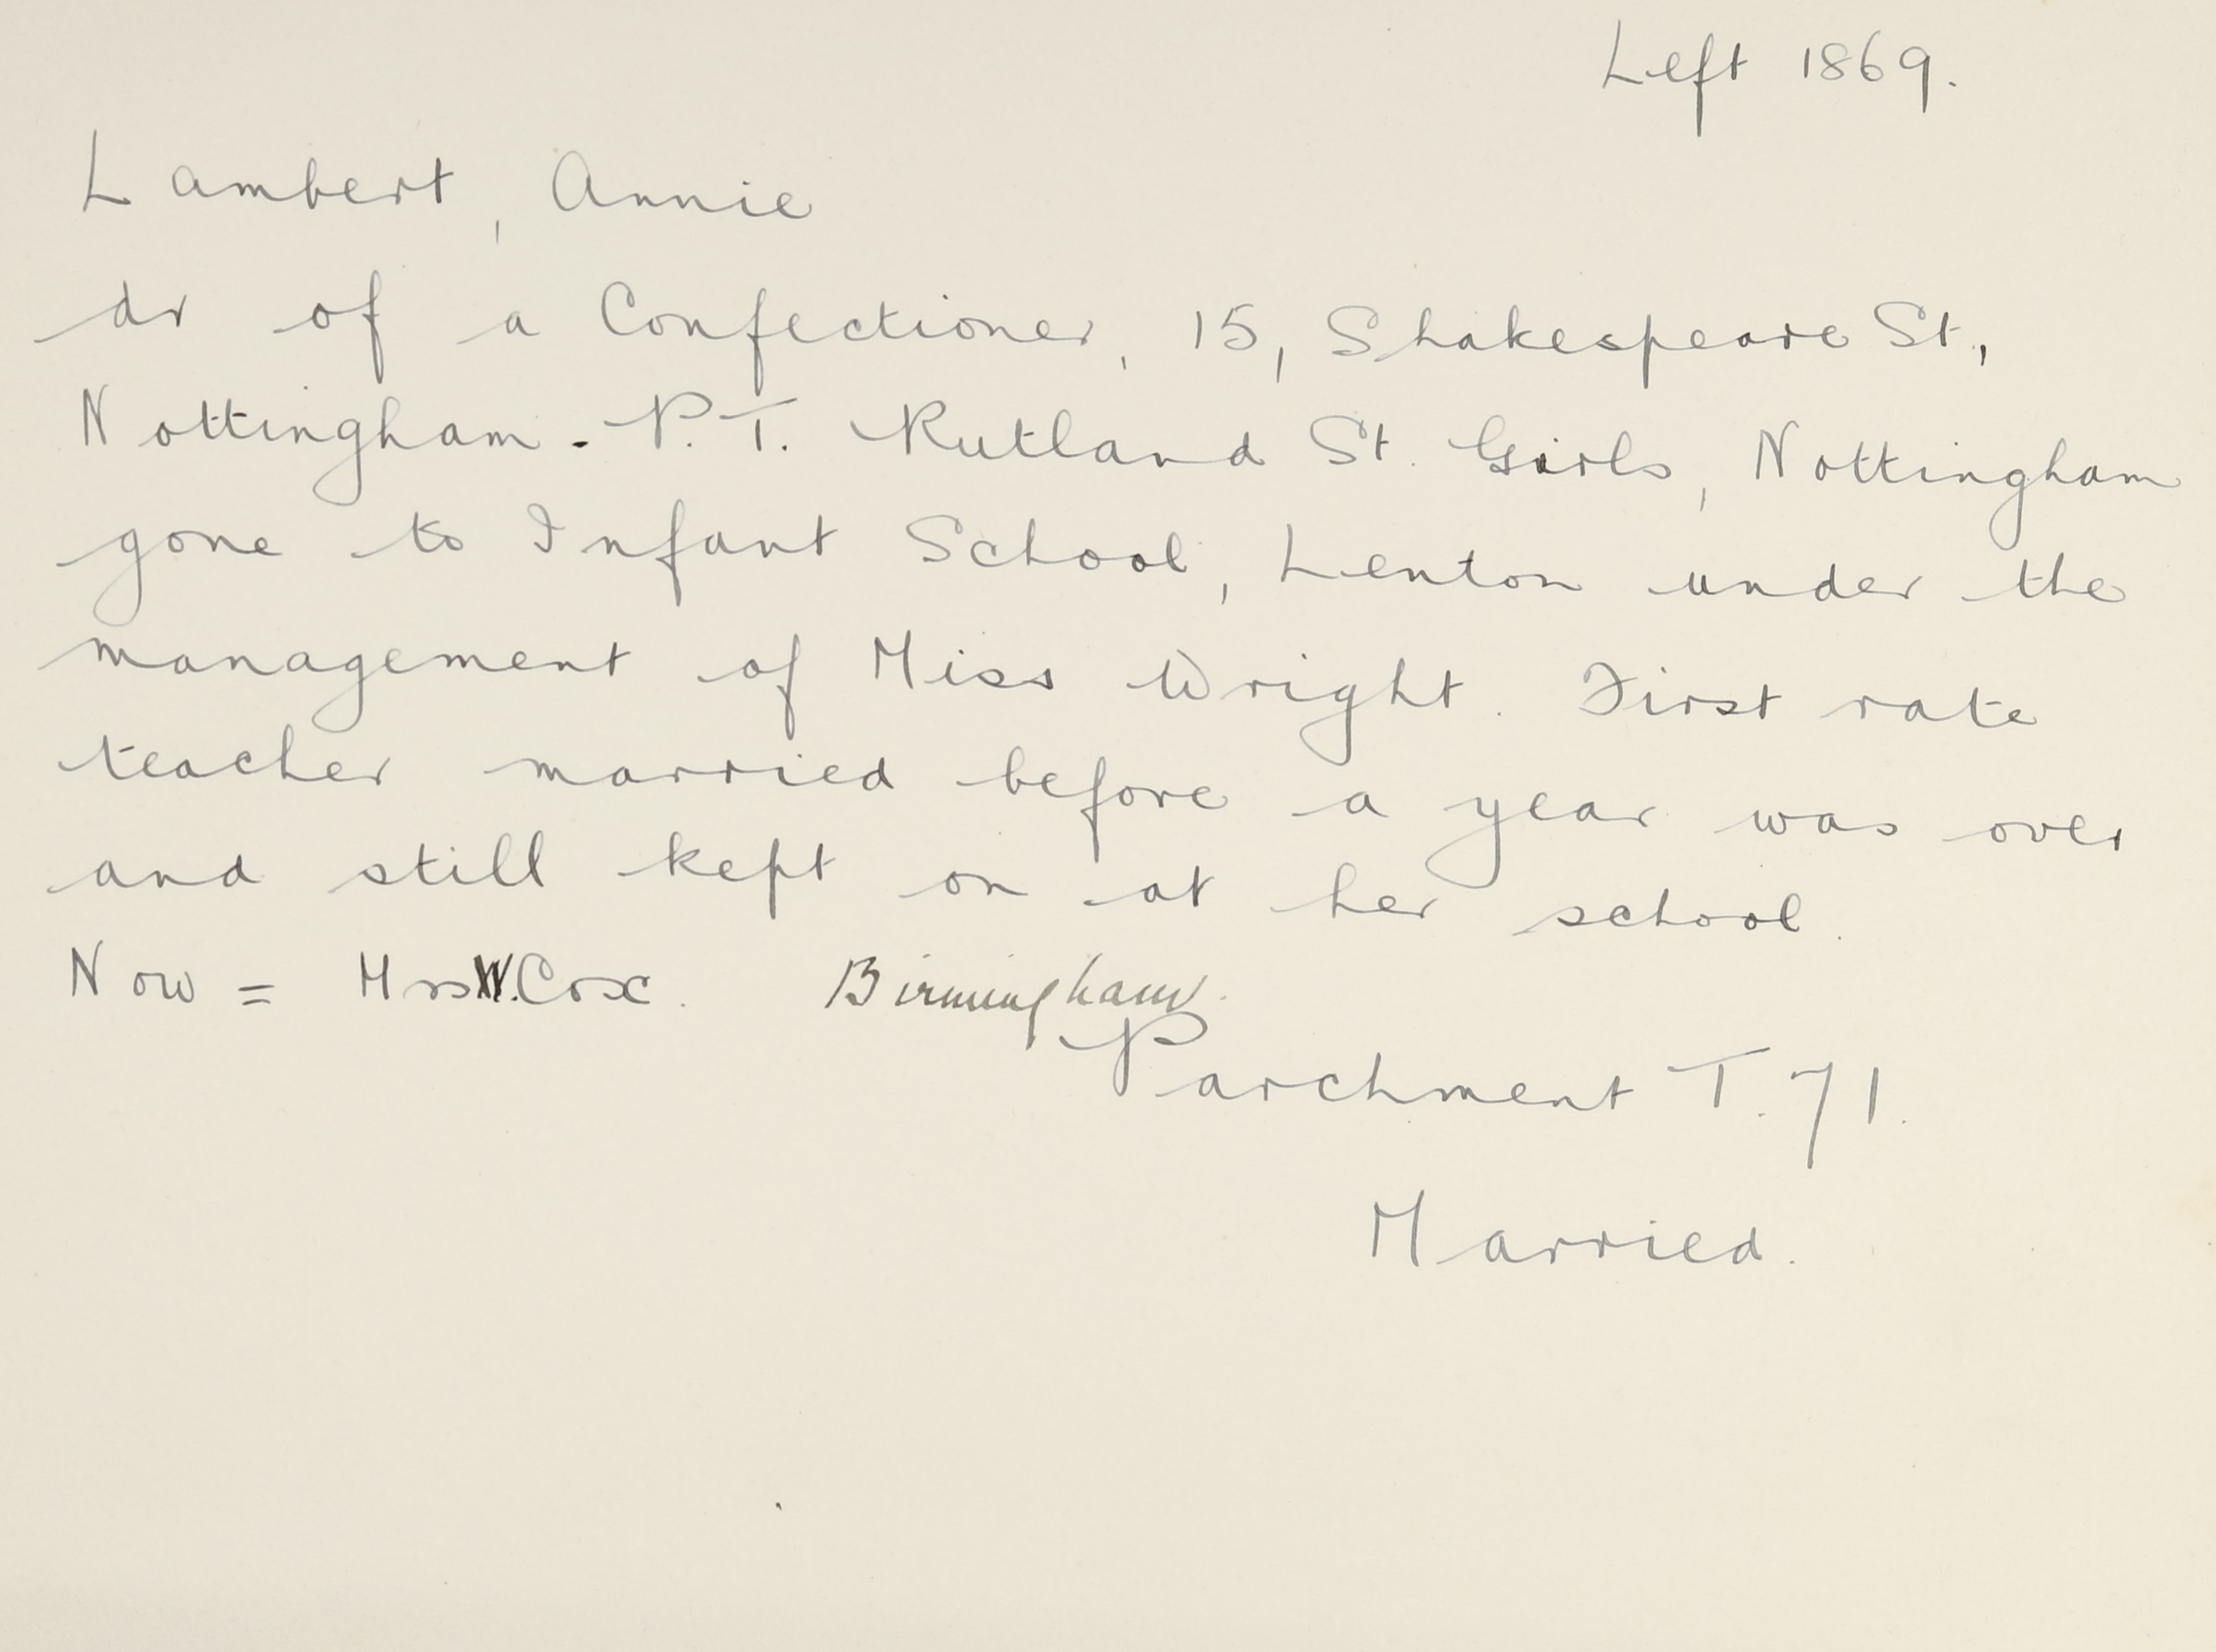 Left 1869.
Lambert, Annie
dr of a Confectioner, 15, Shakespeare St.,
Nottingham - P.T. Rutland St. Girls, Nottingham
gone to Infant School, Lenton under the
management of Miss Wright. First rate
teacher married before a year was over
and still kept on at her school.
Now = Mrs W. Cox. Birmingham.
Parchment T. 71.
Married.